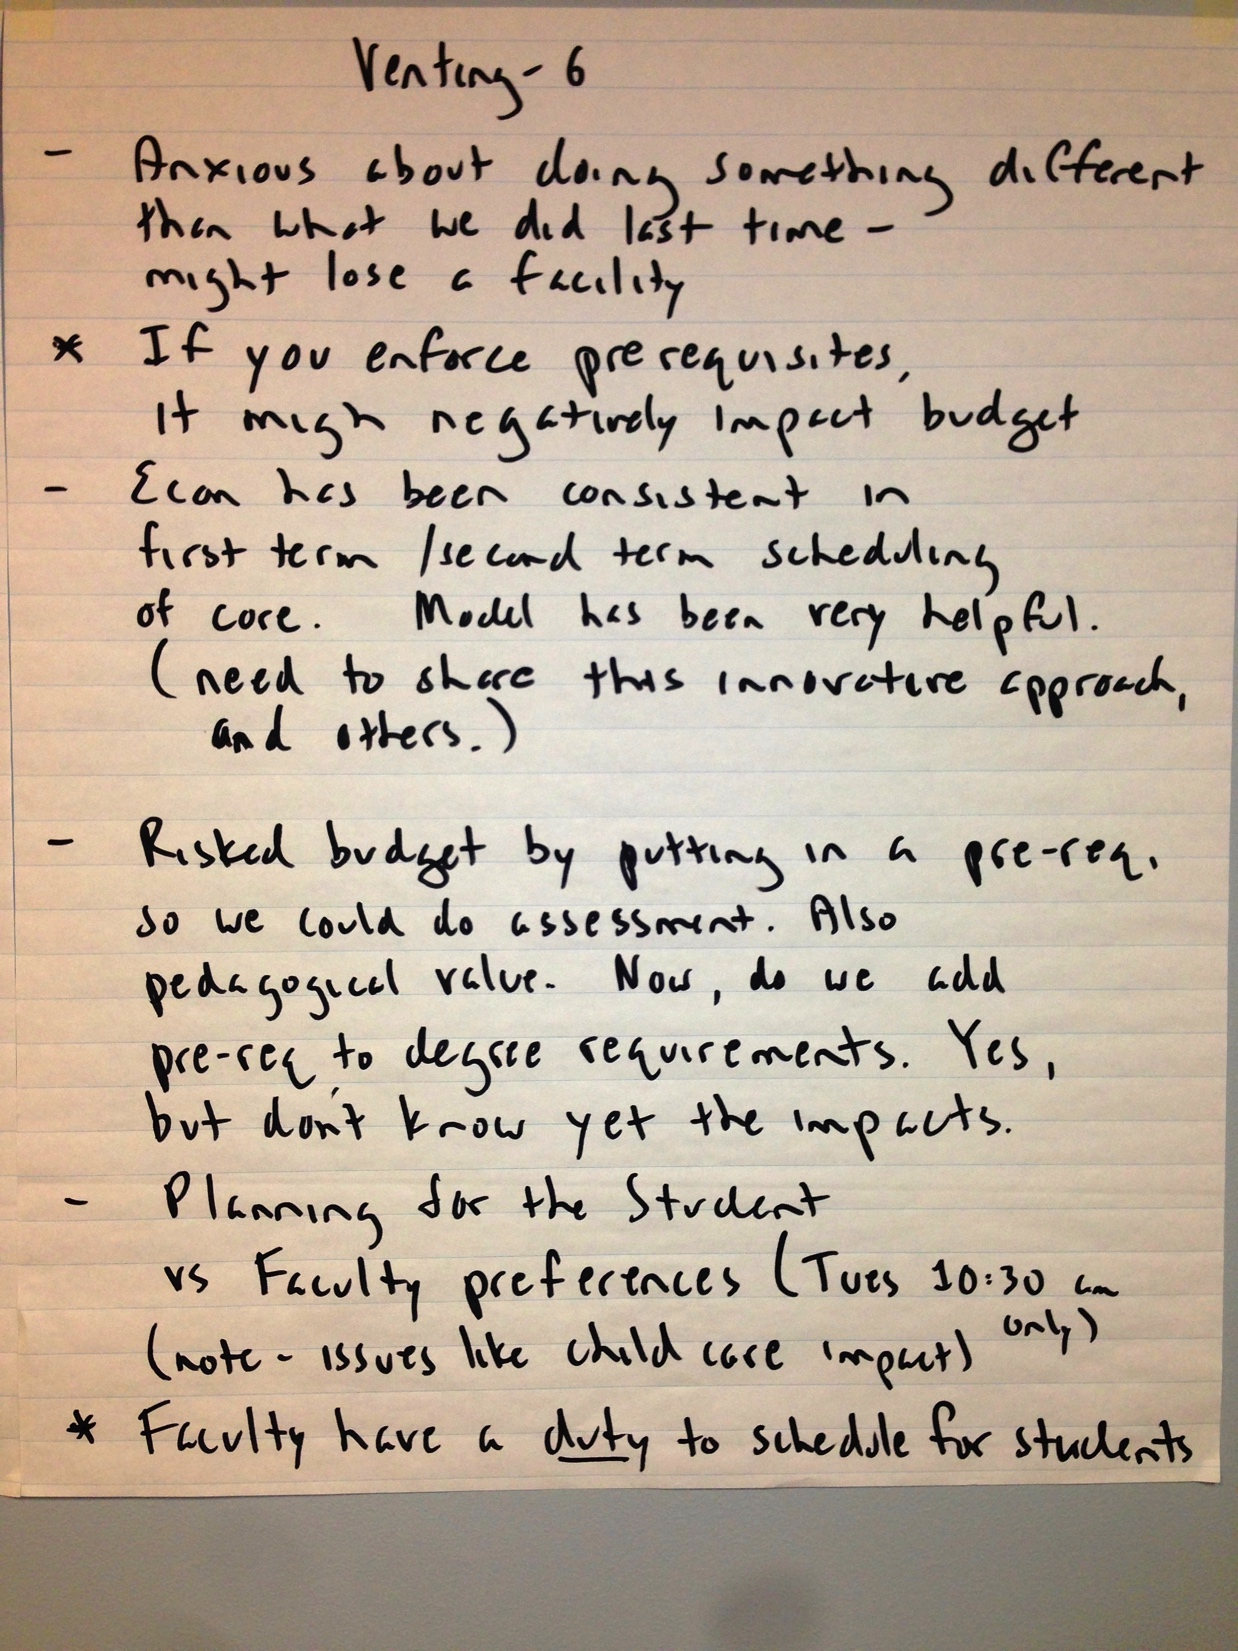 Venting - 6
- Anxious about doing something different
than what we did last time -
might lose a facility
* If you enforce prerequisites,
It migh negatively impact budget
- Econ has been consistent in
first term /second term scheduling
of core. Model has been very helpful.
(need to share this innovative approach,
and others.)
- Risked budget by putting in a pre-req.
so we could do assessment. Also
pedagogical value. Now, do we add
pre-req to degree requirements. Yes,
but don't know yet the impacts.
- Planning for the Student
vs Faculty preferences (Tues 10:30 am
only)
(note - issues like child care impact)
* Faculty have a duty to schedule for students